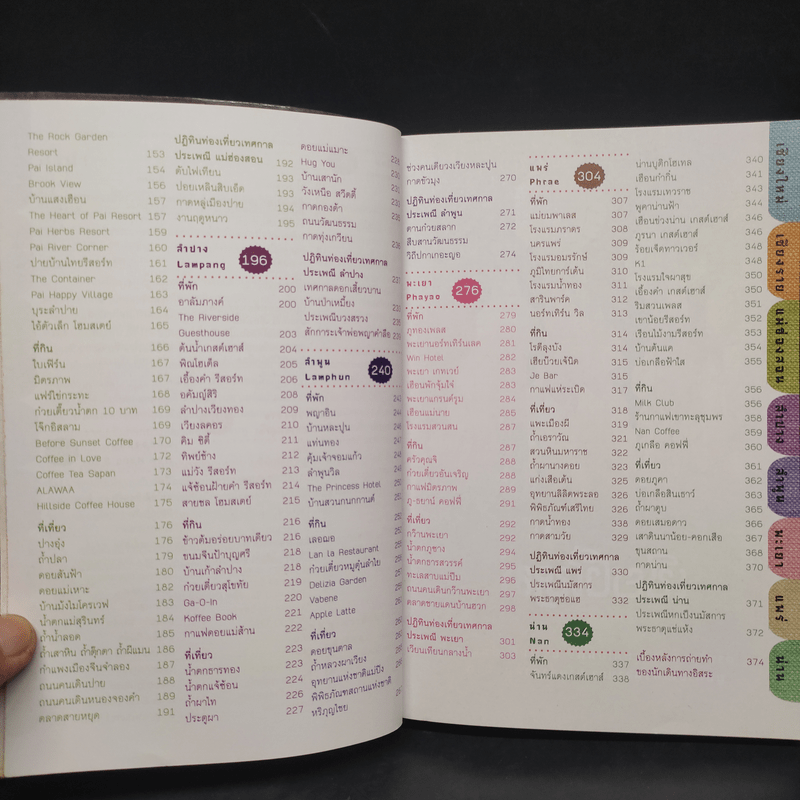 The Rock Garden
Resort 153
Pai Island 154
Brook View 156
บ้านแสงเฮือน 157
The Heart of Pai Resort 157
Pai Herbs Resort 159
Pai River Corner 160
ปายบ้านไทยรีสอร์ท 161
The Container 162
Pai Happy Village 163
บุระลำปาย 164
ไอ้ตัวเล็ก โฮมสเตย์ 165
ที่กิน 166
ใบเฟิร์น 167
มิตรภาพ 167
แฟรี่ไข่กระทะ 168
ก๋วยเตี๋ยวน้ำตก 10 บาท 169
โจ๊กอิสลาม 169
Before Sunset Coffee 170
Coffee in Love 172
Coffee Tea Sapan 173
ALAWAA 174
Hillside Coffee House 175
ที่เที่ยว 176
ปางอุ๋ง 176
ถ้ำปลา 179
ดอยส้นฟ้า 180
ดอยแม่เหาะ 182
บ้านม้งไมโครเวฟ 183
น้ำตกแม่สุรินทร์ 184
ถ้ำน้ำลอด 185
ถ้ำเสาหิน ถ้ำตุ๊กตา ถ้ำผีแมน 186
กำแพงเมืองจีนจำลอง 187
ถนนคนเดินปาย 188
ถนนคนเดินหนองจองคำ 189
ตลาดสายหยุด 191
ปฏิทินท่องเที่ยวเทศกาล
ประเพณี แม่ฮ่องสอน 192
ดับไฟเทียน 193
ปอยเหลินสิบเอ็ด 193
กาดหลู่เมืองปาย 194
งานฤดูหนาว 195
ลำปาง
Lampang 196
ที่พัก 200
อาลัมภางค์ 200
The Riverside
Guesthouse 203
ต้นน้ำเกสต์เฮาส์ 204
พิณไฮเดิ้ล 205
เอื้องคำ รีสอร์ท 206
อคัมญ์สิริ 208
ลำปางเวียงทอง 209
เวียงลคอร 210
ดิม ซิตี้ 211
ทิพย์ช้าง 212
แม่วัง รีสอร์ท 213
แจ้ซ้อนฝ้ายคำ รีสอร์ท 214
สายชล โฮมสเตย์ 215
ที่กิน 216
ข้าวต้มอร่อยบาทเดียว 216
ขนมจีนป้าบุญศรี 218
บ้านเก้าลำปาง 218
ก๋วยเตี๋ยวสุโขทัย 219
Ga-O-In 220
Koffee Book 221
กาแฟดอยแม่ส้าน 222
ที่เที่ยว 223
น้ำตกธารทอง 223
น้ำตกแจ้ซ้อน 224
ถ้ำผาไท 226
ประตูผา 227
ดอยแม่เมาะ
Hug You
บ้านเสานัก
วังเหนือ สวีตตี้
กาดกองต้า
ถนนวัฒนธรรม
กาดทุ่งเกวียน
ปฏิทินท่องเที่ยวเทศกาล
ประเพณี ลำปาง
เทศกาลดอกเสี้ยวบาน
บ้านป่าเหมี้ยง
ประเพณีบวงสรวง
สักการะเจ้าพ่อพญาคำลือ
ลำพูน
Lamphun 240
ที่พัก
พญาอิน
บ้านหละปูน
แท่นทอง
คุ้มเจ้าจอมแก้ว
ลำพูนวิล
The Princess Hotel
บ้านสวนกนกกานต์
ที่กิน
เลอฌอ
Lan la Restaurant
ก๋วยเตี๋ยวหมูตุ๋นลำไย
Delizia Garden
Vabene
Apple Latte
ที่เที่ยว
ดอยขุนตาล
ถ้ำหลวงผาเวียง
อุทยานแห่งชาติแม่ปิง
พิพิธภัณฑสถานแห่งชาติ
หริภุญไชย
ช่วงคนเดียวงเวียงหละปุน
กาดขัวมุง 270
ปฏิทินท่องเที่ยวเทศกาล
ประเพณี ลำพูน 271
ตานก๋วยสลาก 272
สืบสานวัฒนธรรม
วิถีปกาเกอะญอ 274
พะเยา
Phayao 276
ที่พัก 279
ภูทองเพลส 280
พะเยานอร์ทเทิร์นเลค 281
Win Hotel 282
พะเยา เกทเวย์ 283
เฮือนพักจุ้มใจ๋ 283
พะเยาแกรนด์รูม 284
เฮือนแม่นาย 285
โรงแรมสวนสน 287
ที่กิน 287
ครัวคุณจิ 288
ก๋วยเตี๋ยวอันเจริญ 288
กาแฟมิตรภาพ 289
ภู-ธยาน์ คอฟฟี่ 291
ที่เที่ยว 292
กว๊านพะเยา 292
น้ำตกภูซาง 294
น้ำตกธารสวรรค์ 295
ทะเลสาบแม่ปืม 296
ถนนคนเดินกว๊านพะเยา 297
ตลาดชายแดนบ้านฮวก 298
ปฏิทินท่องเที่ยวเทศกาล
ประเพณี พะเยา 301
เวียนเทียนกลางน้ำ 303
แพร่
Phrae 304
ที่พัก 307
แม่ยมพาเลส 307
โรงแรมภราดร 308
นครแพร่ 309
โรงแรมอมรรักษ์ 309
ภูมิไทยการ์เด้น 310
โรงแรมน้ำทอง 311
สารินพาร์ค 312
นอร์ทเทิร์น วิล 313
ที่กิน 314
ไรตีลุงบัง 314
เฮียบัวยเจ้นิด 315
Je Bar 315
กาแฟแห่ระเบิด 317
ที่เที่ยว 318
แพะเมืองผี 319
ถ้ำเอราวัณ 321
สวนหินมหาราช 322
ถ้ำผานางคอย 323
แก่งเสือเต้น 325
อุทยานลิลิตพระลอ 326
พิพิธภัณฑ์เสรีไทย 326
กาดน้ำทอง 328
กาดสามวัย 329
ปฏิทินท่องเที่ยวเทศกาล
ประเพณี แพร่ 330
ประเพณีนมัสการ
พระธาตุช่อแฮ 332
น่าน
Nan 334
ที่พัก 337
จันทร์แดงเกสต์เฮาส์ 338
น่านบูติกโฮเทล 340
เฮือนกำกิ๋น 341
โรงแรมเทวราช 343
พูคาน่านฟ้า 344
เฮือนช่วงน่าน เกสต์เฮาส์ 346
ภูรนา เกสต์เฮาส์ 346
ร้อยเจ็ดทาวเวอร์ 347
K1 348
โรงแรมใจผาสุข 349
เอื้องคำ เกสต์เฮาส์ 350
ริมสวนเพลส 350
เขาน้อยรีสอร์ท 351
เรือนไม้งามรีสอร์ท 353
บ้านต้นแค 354
บ่อเกลือฟ้าใส 355
ที่กิน 356
Milk Club 356
ร้านกาแฟเขาทะลุชุมพร 358
Nan Coffee 359
ภูเกลือ คอฟฟี่ 360
ที่เที่ยว 361
ดอยภูคา 362
บ่อเกลือสินเธาว์ 363
ถ้ำผาตูบ 365
ดอยเสมอดาว 366
เสาดินนาน้อย-คอกเสือ 367
ขุนสถาน 368
กาดน่าน 370
ปฏิทินท่องเที่ยวเทศกาล
ประเพณี น่าน 371
ประเพณีหกเป็งนมัสการ
พระธาตุแช่แห้ง 372
เบื้องหลังการถ่ายทำ 374
ของนักเดินทางอิสระ
เชียงใหม่
เชียงราย
แม่ฮ่องสอน
ลำปาง
ลำพูน
พะเยา
แพร่
น่าน